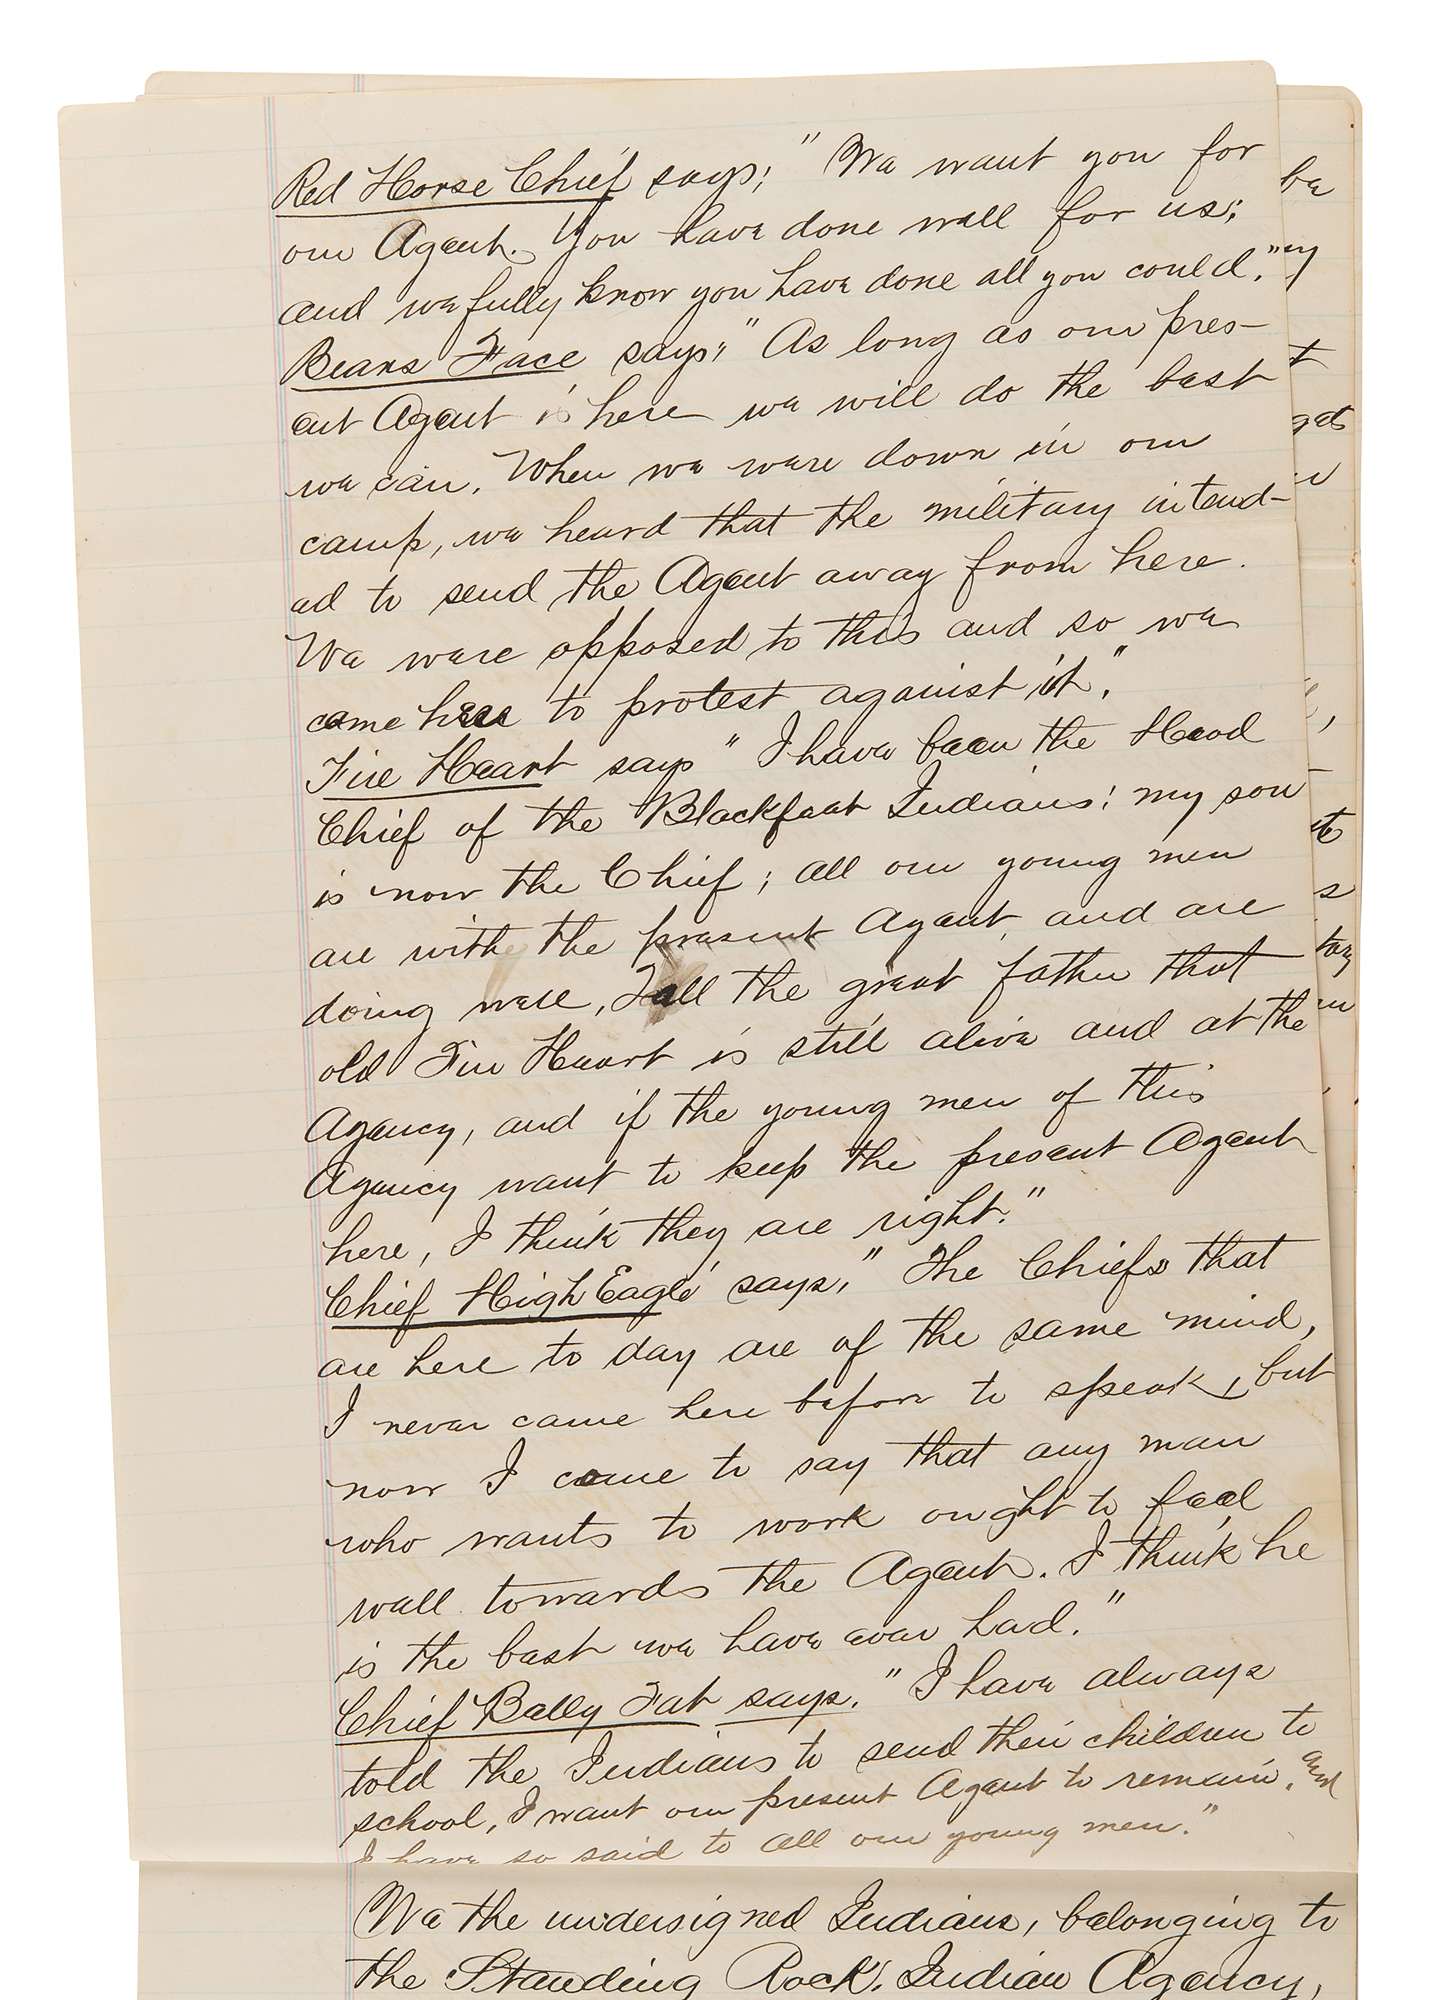 Red Horse Chief says; "We want you for
our Agent. You have done well for us;
and we fully know you have done all you could."
Bears Face says; "As long as our pres-
ent Agent is here we will do the best
we can. When we were down in our
camp, we heard that the military intend-
ed to send the Agent away from here.
We were opposed to this and so we
come here to protest against it."
Fire Heart says "I have been the Head
Chief of the Blackfeet Indians; my son
is now the Chief; all our young men
are with the present Agent, and are
doing well, Tell the great father that
old Fire Heart is still alive and at the
Agency, and if the young men of this
Agency want to keep the present Agent
here, I think they are right."
Chief High Eagle says, "The Chiefs that
are here to day are of the same mind,
I never came here before to speak, but
now I come to say that any man
who wants to work ought to feel
well towards the Agent. I think he
is the best we have ever had."
Chief Belly Fat says. "I have always
told the Indians to send their children to
school, I want our present Agent to remain, and
I have so said to all our young men."
We the undersigned Indians, belonging to
the Standing Rock, Indian Agency,
be
ey
t
gets
ts
s